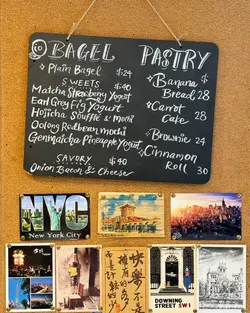 BAGEL
Plain Bagel $24
SWEETS $40
Matcha Strawberry Yogurt
Earl Grey Fig Yogurt
Hojicha Soufflé & Mochi
Oolong Redbean mochi
Genmaicha Pineapple Yogurt
SAVORY $40
Onion Bacon & Cheese
PASTRY
Banana
Bread 28
Carrot
Cake 28
Brownie 24
Cinnamon
Roll 30
NYC
New York City
快樂不是
DOWNING
STREET SW1